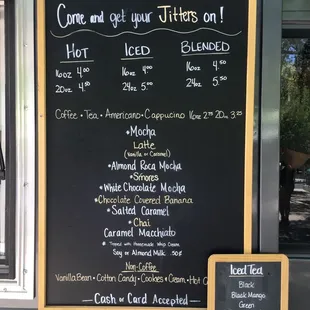 Come and get your Jitters on!
Hot Iced Blended
16oz 4.00 16oz 4.00 16oz 4.50
20oz 4.50 24oz 5.00 24oz 5.50
Coffee • Tea • Americano • Cappucino 16oz 2.75 20oz 3.25
• Mocha
Latte
(Vanilla or Caramel)
• Almond Roca Mocha
• S'mores
• White Chocolate Mocha
• Chocolate Covered Banana
• Salted Caramel
• Chai
Caramel Macchiato
* Topped with Homemade Whip Cream
Soy or Almond Milk .50¢
Non-Coffee
Vanilla Bean • Cotton Candy • Cookies & Cream • Hot
Cash or Card Accepted
Iced Tea
Black
Black Mango
Green